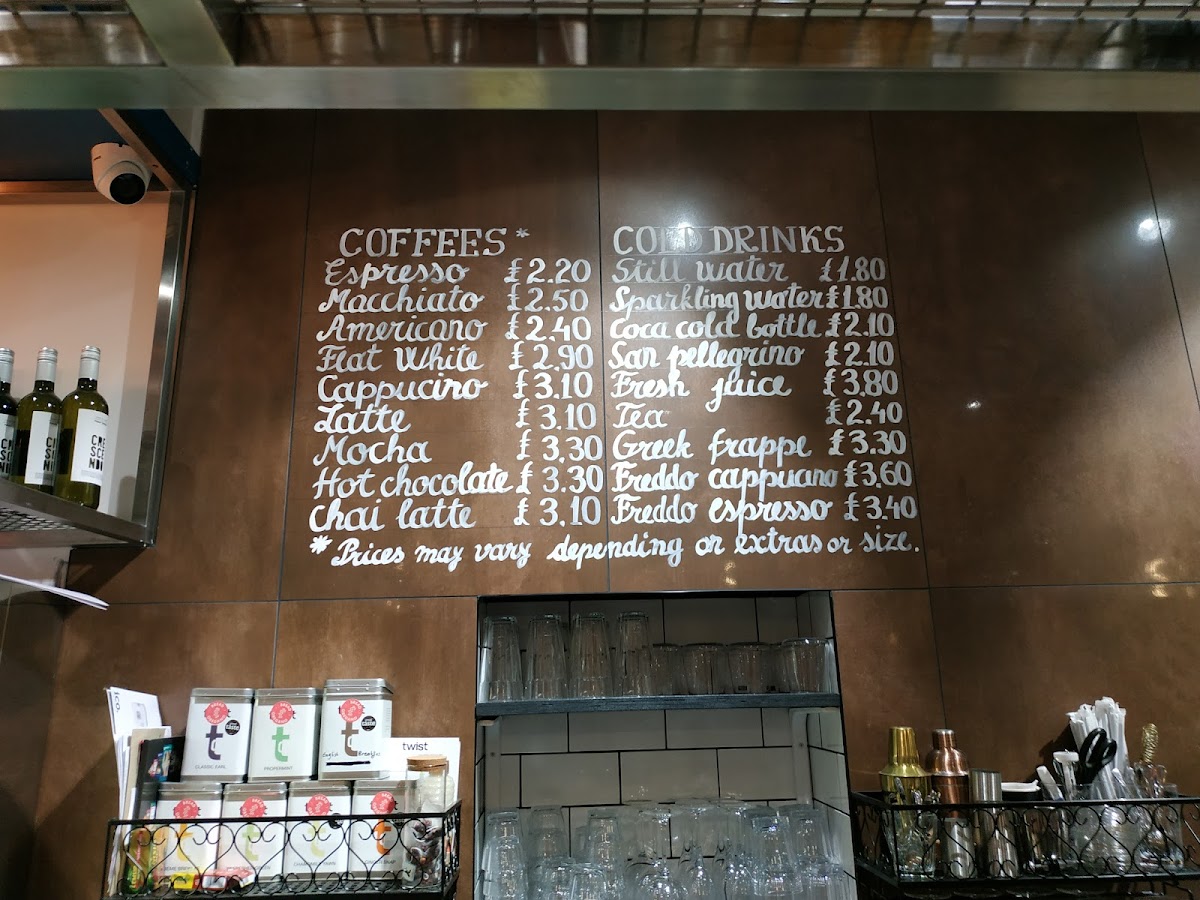 COFFEES*
Espresso £2.20
Macchiato £2.50
Americano £2.40
Flat White £2.90
Cappucino £3.10
Latte £3.10
Mocha £3.30
Hot chocolate £3.30
Chai latte £3.10
COLD DRINKS
Still water £1.80
Sparkling water £1.80
Coca cold bottle £2.10
San pellegrino £2.10
Fresh juice £3.80
Tea £2.40
Greek frappe £3.30
Freddo cappucino £3.60
Freddo espresso £3.40
* Prices may vary depending on extras or size.
CRE
SCE
NDI
t
CLASSIC EARL
t
PEPPERMINT
t
English Breakfast
twist